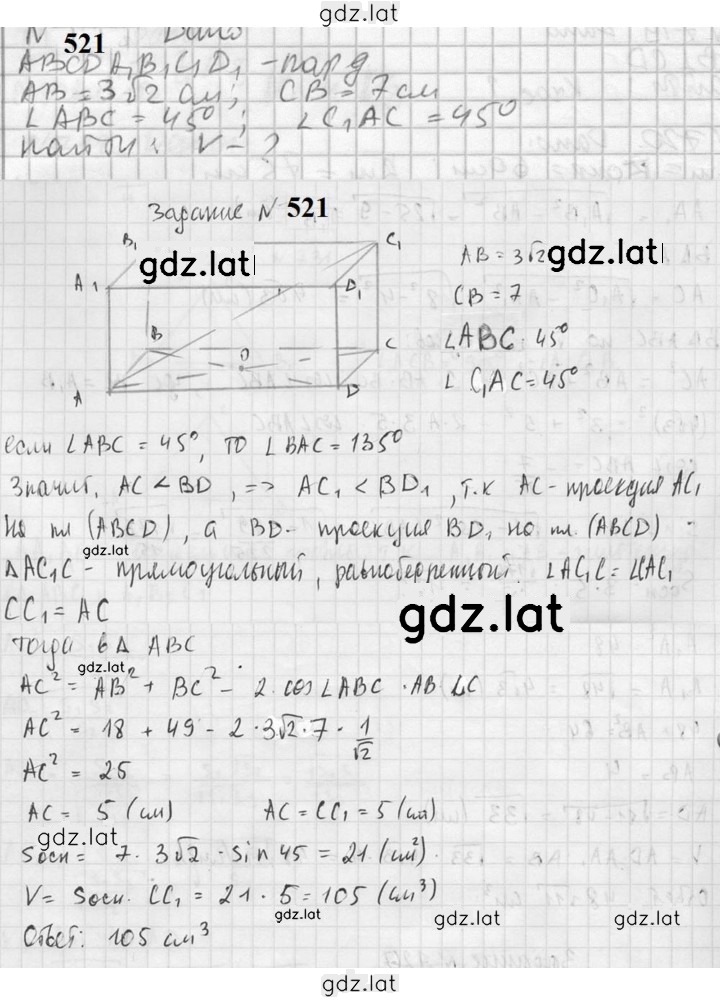 gdz.lat
521 Дано
ABCDA₁B₁C₁D₁ - пар-д
AB = 3√2 см; CB = 7 см
∠ABC = 45°; ∠C₁AC = 45°
Найти: V - ?
Задание N 521
B₁ C₁
gdz.lat
A1 D₁
B C
O
A D
AB = 3√2
gdz.lat
CB = 7
∠ABC = 45°
∠C₁AC = 45°
если ∠ABC = 45°, то ∠BAC = 135°
Значит, AC < BD, => AC₁ < BD₁, т.к AC - проекция AC₁
на пл (ABCD), а BD - проекция BD₁ на пл. (ABCD)
gdz.lat
ΔAC₁C - прямоугольный, равнобедренный. ∠AC₁C = ∠CAC₁
CC₁ = AC
gdz.lat
тогда в Δ ABC
gdz.lat
AC² = AB² + BC² - 2 · cos∠ABC · AB · BC
AC² = 18 + 49 - 2 · 3√2 · 7 · 1/√2
AC² = 25
AC = 5 (см) AC = CC₁ = 5 (см)
gdz.lat
Sосн = 7 · 3√2 · sin 45 = 21 (см²)
V = Sосн. CC₁ = 21 · 5 = 105 (см³)
gdz.lat
Ответ: 105 см³
gdz.lat
gdz.lat